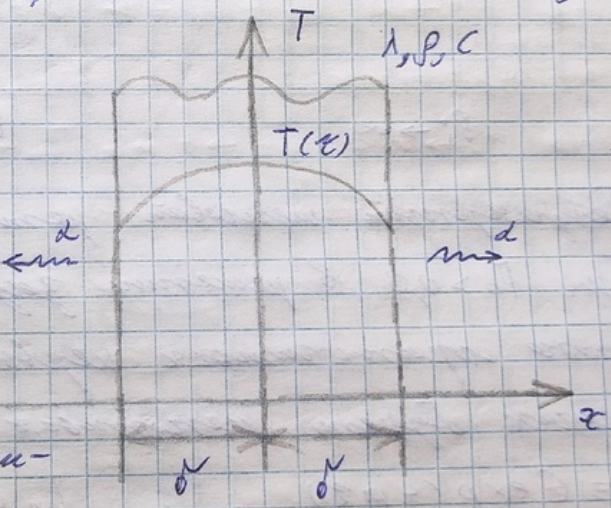 T
λ, ρ, c
T(τ)
α
α
x
и-
δ
δ